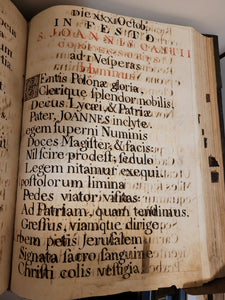 Die xx. Octob.
IN FESTO
S. JOANNIS CANTII
ad I Vesperas
Hymnus
Gentis Polonæ gloria,
Clerique splendor nobilis,
Decus Lycæi, & Patriæ
Pater, JOANNES inclyte.
Legem superni Numinis
Doces Magister, & facis:
Nil scire prodest, sedulo
Legem nitamur exequi.
Apostolorum limina
Pedes viator visitas:
Ad Patriam, quam tendimus,
Gressus, viamque dirige.
Urbem petis Jerusalem:
Signata sacro sanguine
Christi colis vestigia,